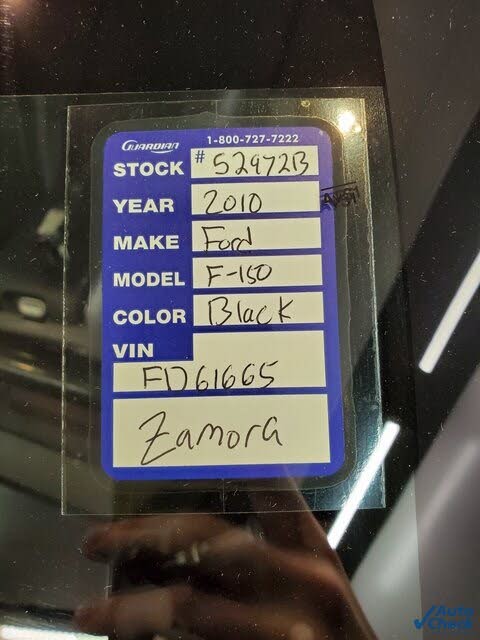 GUARDIAN 1-800-727-7222
STOCK # 52972B
YEAR 2010
MAKE Ford
MODEL F-150
COLOR Black
VIN
FD61665
Zamora
Auto
Check